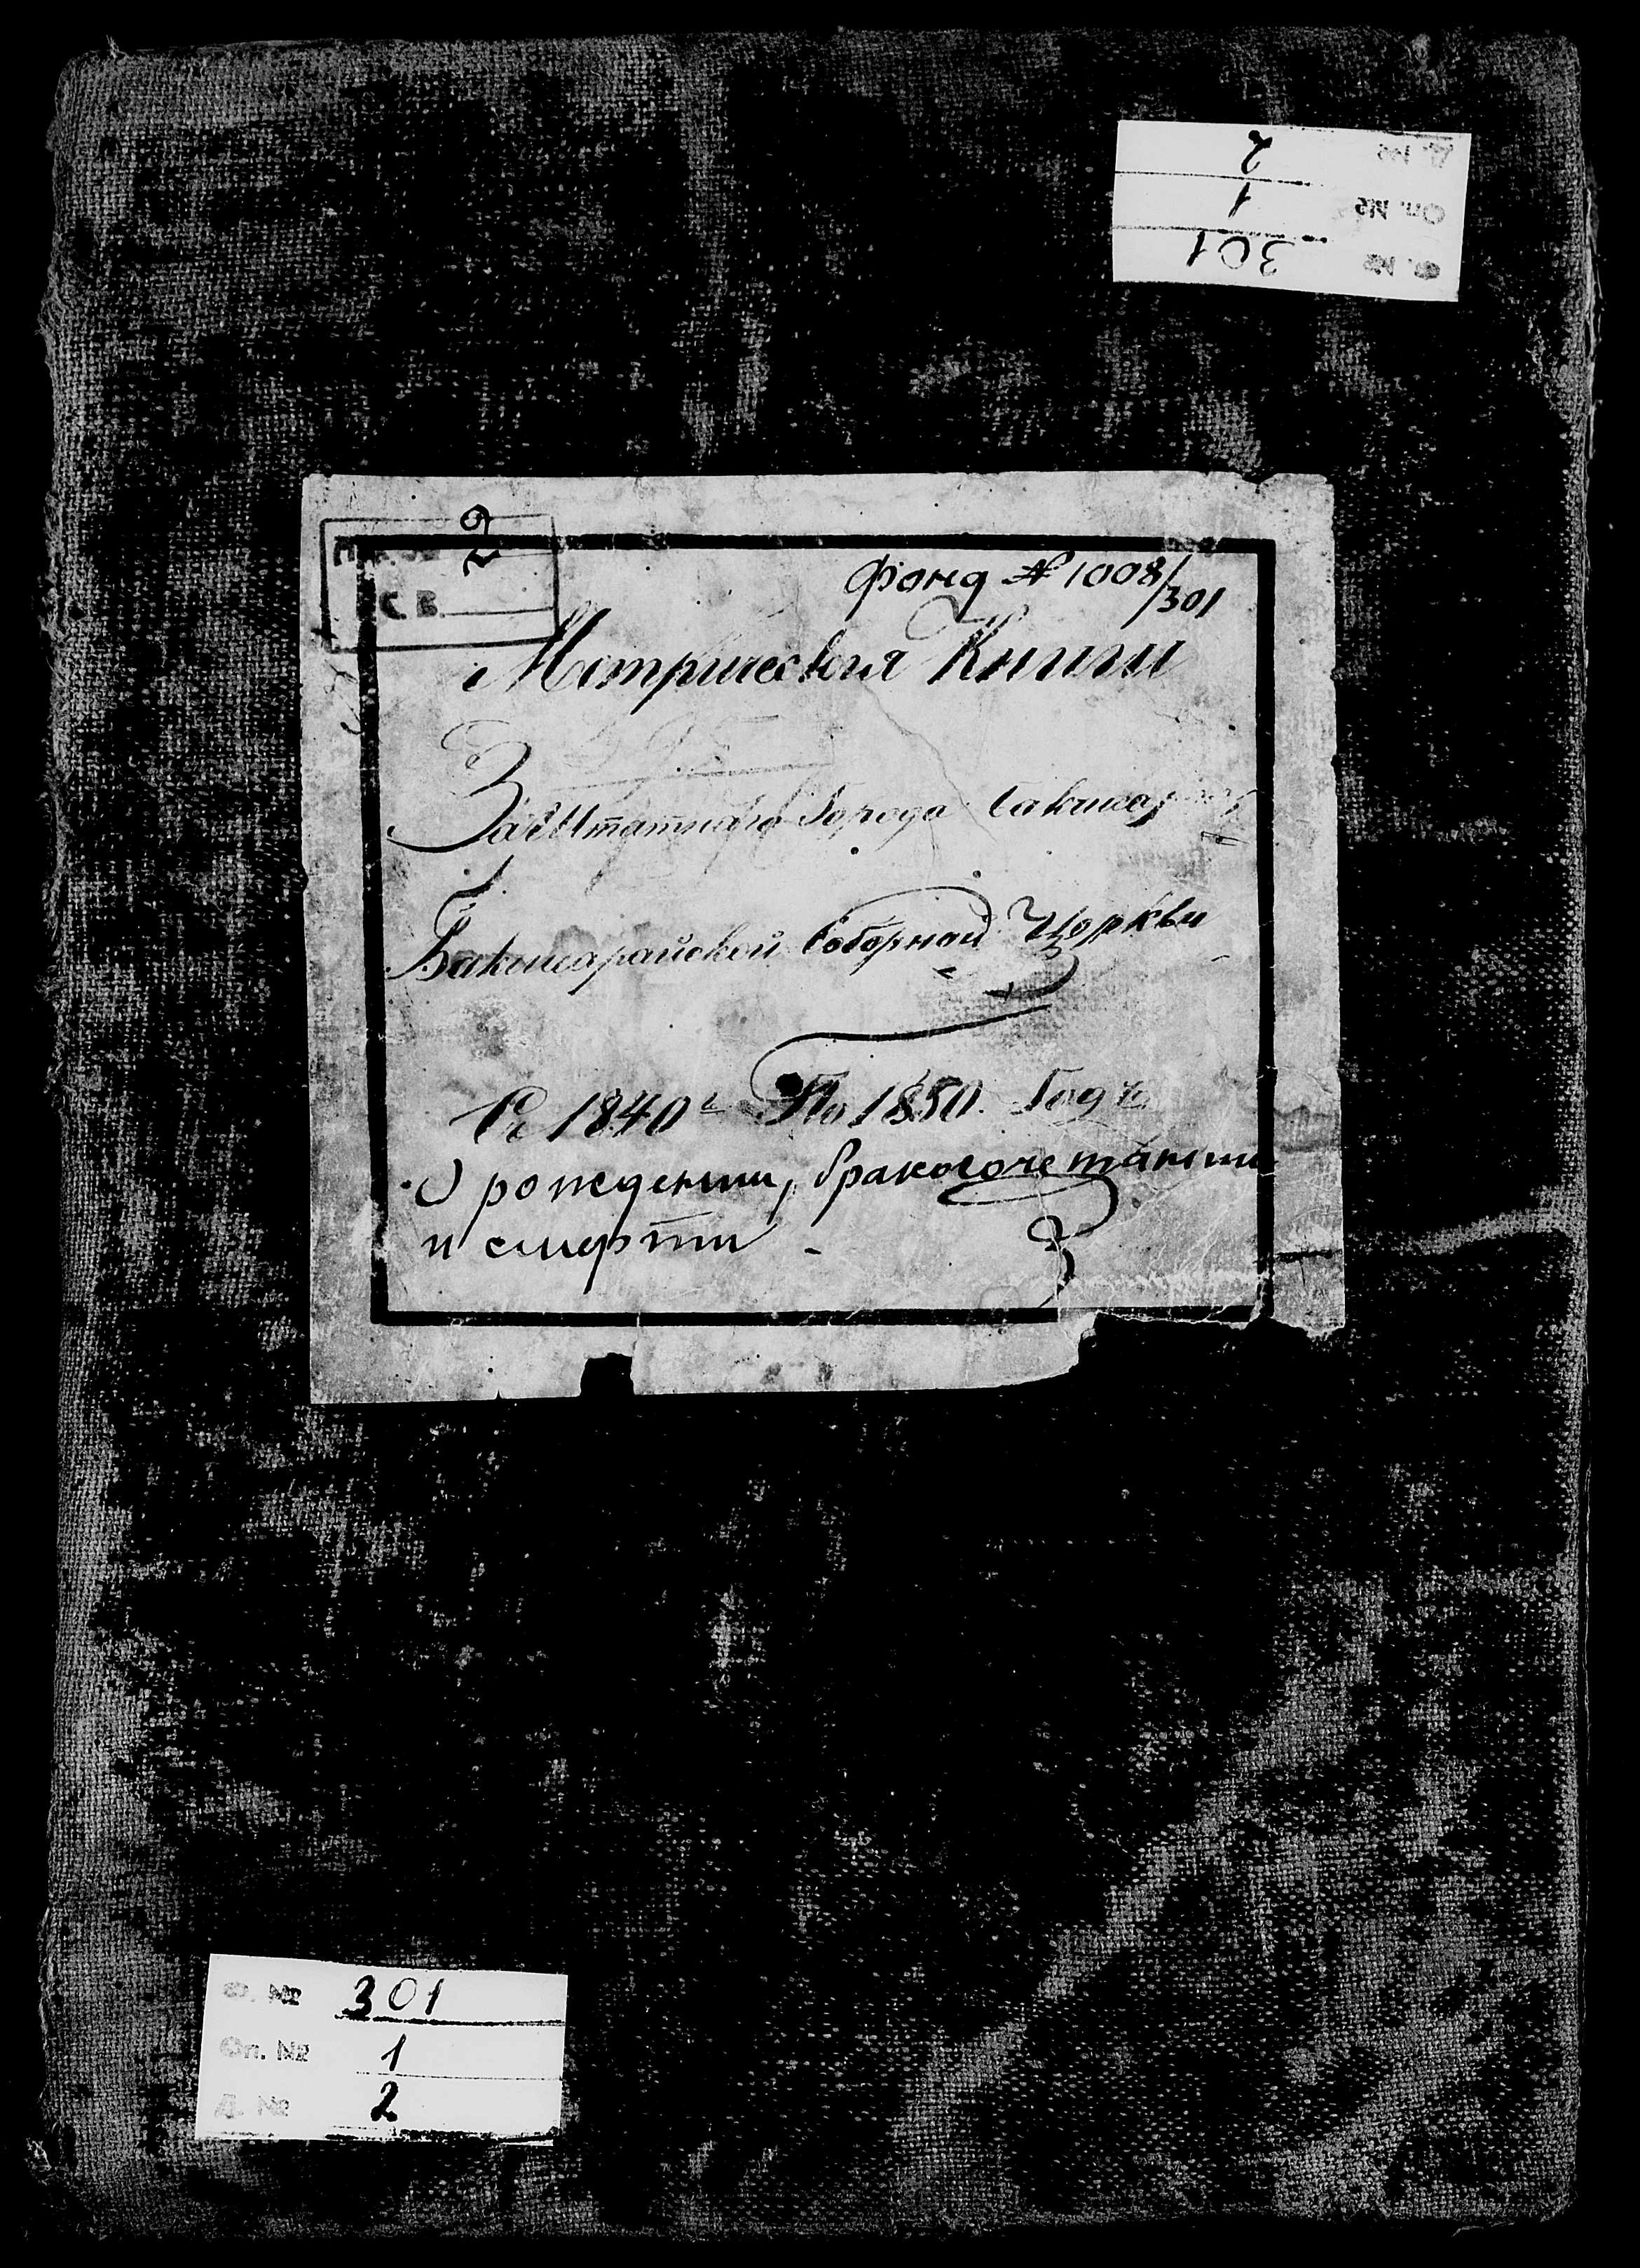 Д. № 2
Оп. № 1
Ф. № 301
29
С. В.
фонд № 1008/301
Метрическия Книги
Заштатнаго Города
Бакчисарайской Соборной Церкви
Съ 1840 г По 1850. Годъ
О рождении, бракосочетании
и смерти -
Ф. № 301
Оп. № 1
Д. № 2